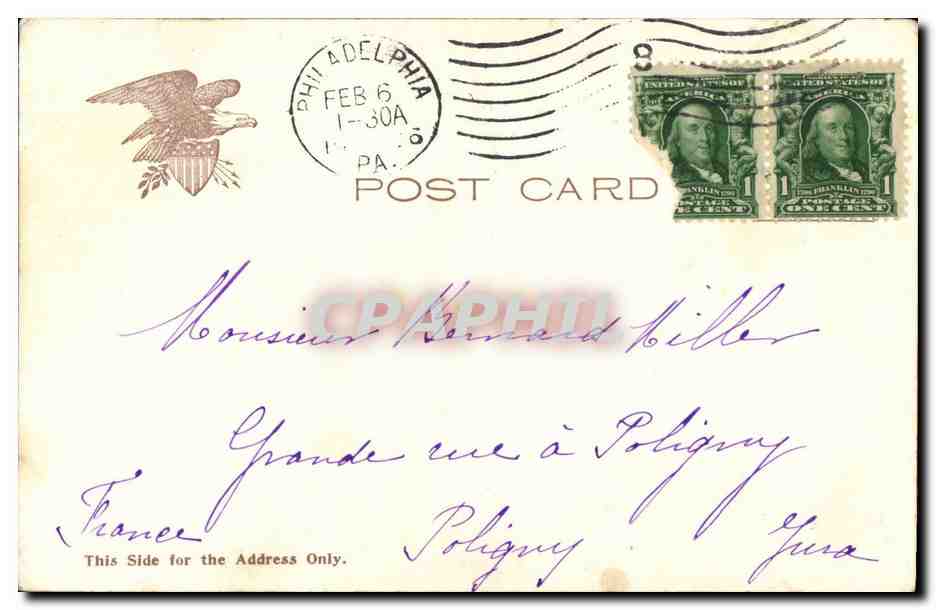 PHILADELPHIA
FEB 6
1-30A
PA.
8
UNITED STATES OF
AMERICA
FRANKLIN 1790
1
POSTAGE
ONE CENT
UNITED STATES OF
AMERICA
1
1706 FRANKLIN 1790
1
POSTAGE
ONE CENT
POST CARD
CPAPHIL
Monsieur Bernard Miller
Grande rue à Poligny
France Poligny Jura
This Side for the Address Only.